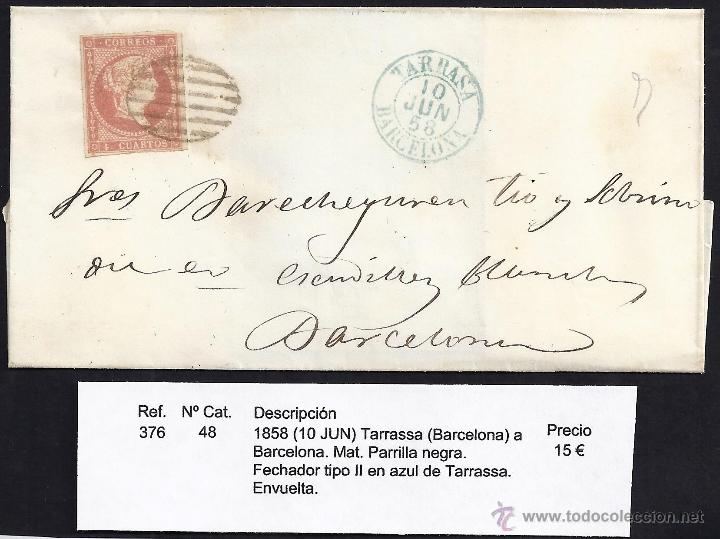 CORREOS
4 CUARTOS
TARRASA
10
JUN
58
BARCELONA
Sres Barecheguren tio y Sobrino
Barcelona
Ref. Nº Cat. Descripción Precio
376 48 1858 (10 JUN) Tarrassa (Barcelona) a 15 €
Barcelona. Mat. Parrilla negra.
Fechador tipo II en azul de Tarrassa.
Envuelta.
www.todocoleccion.net